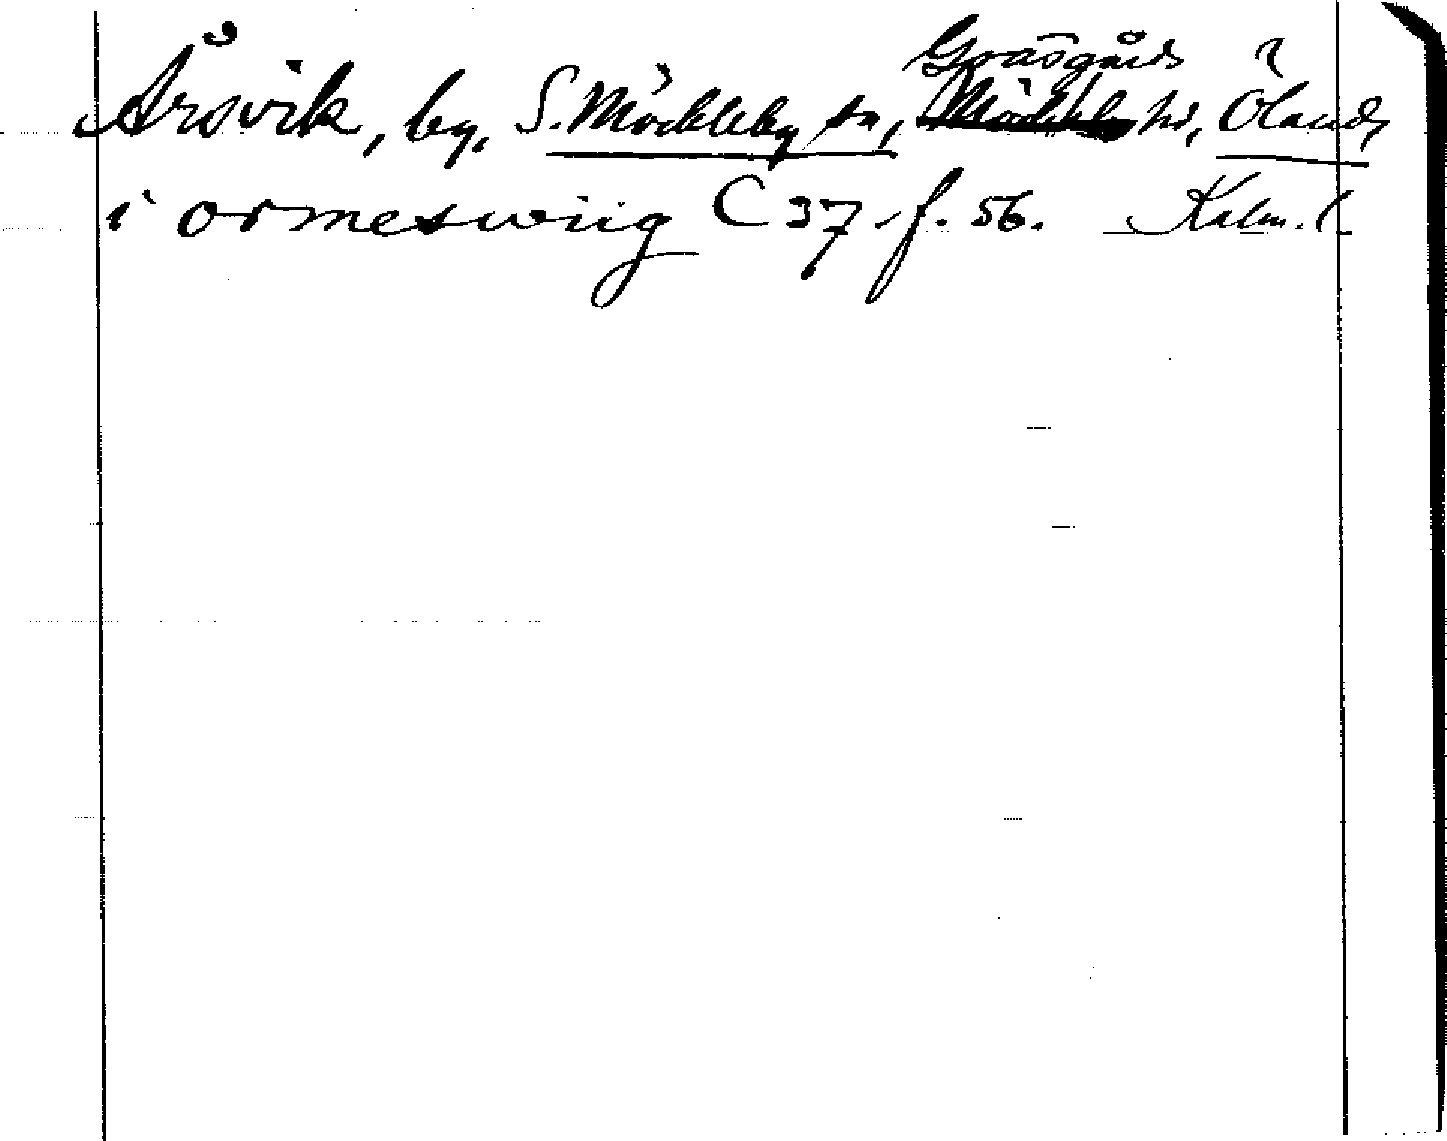 Gräsgårds
Årsvik, by, S. Möckleby sn, Möckleby hd, Öland,
i ormeswiig C 37 f. 56. Kalm. l.